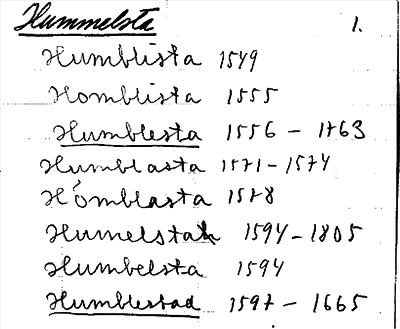 Hummelsta 1.
Humblista 1549
Homblista 1555
Humblesta 1556 - 1763
Humblasta 1571 - 1574
Hómblasta 1578
Humelstah 1594 - 1805
Humbelsta 1594
Humblestad 1597 - 1665